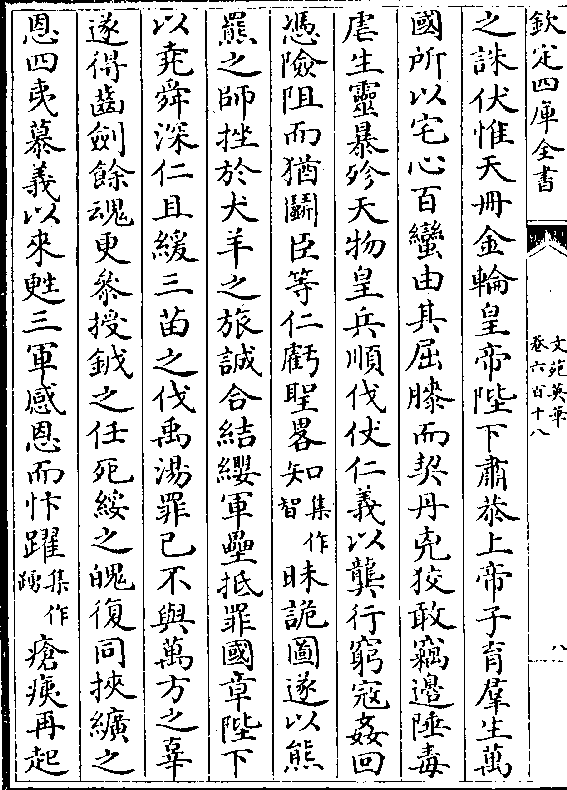 欽定四庫全書
文苑英華
卷六百十八
八
之誅伏惟天册金輪皇帝陛下肅恭上帝子育羣生萬
國所以宅心百蠻由其屈膝而契丹兇狡敢竊邊陲毒
虐生靈暴殄天物皇兵順伐伏仁義以龔行窮寇姦回
憑險阻而猶鬭臣等仁虧聖畧知集作智昧詭圖遂以熊
羆之師挫於犬羊之旅誠合結纓軍壘抵罪國章陛下
以堯舜深仁且緩三苗之伐禹湯罪己不與萬方之辜
遂得齒劍餘魂更叅授鉞之任死綏之魄復同挾纊之
恩四夷慕義以來甦三軍感恩而忭躍集作踴瘡痍再起